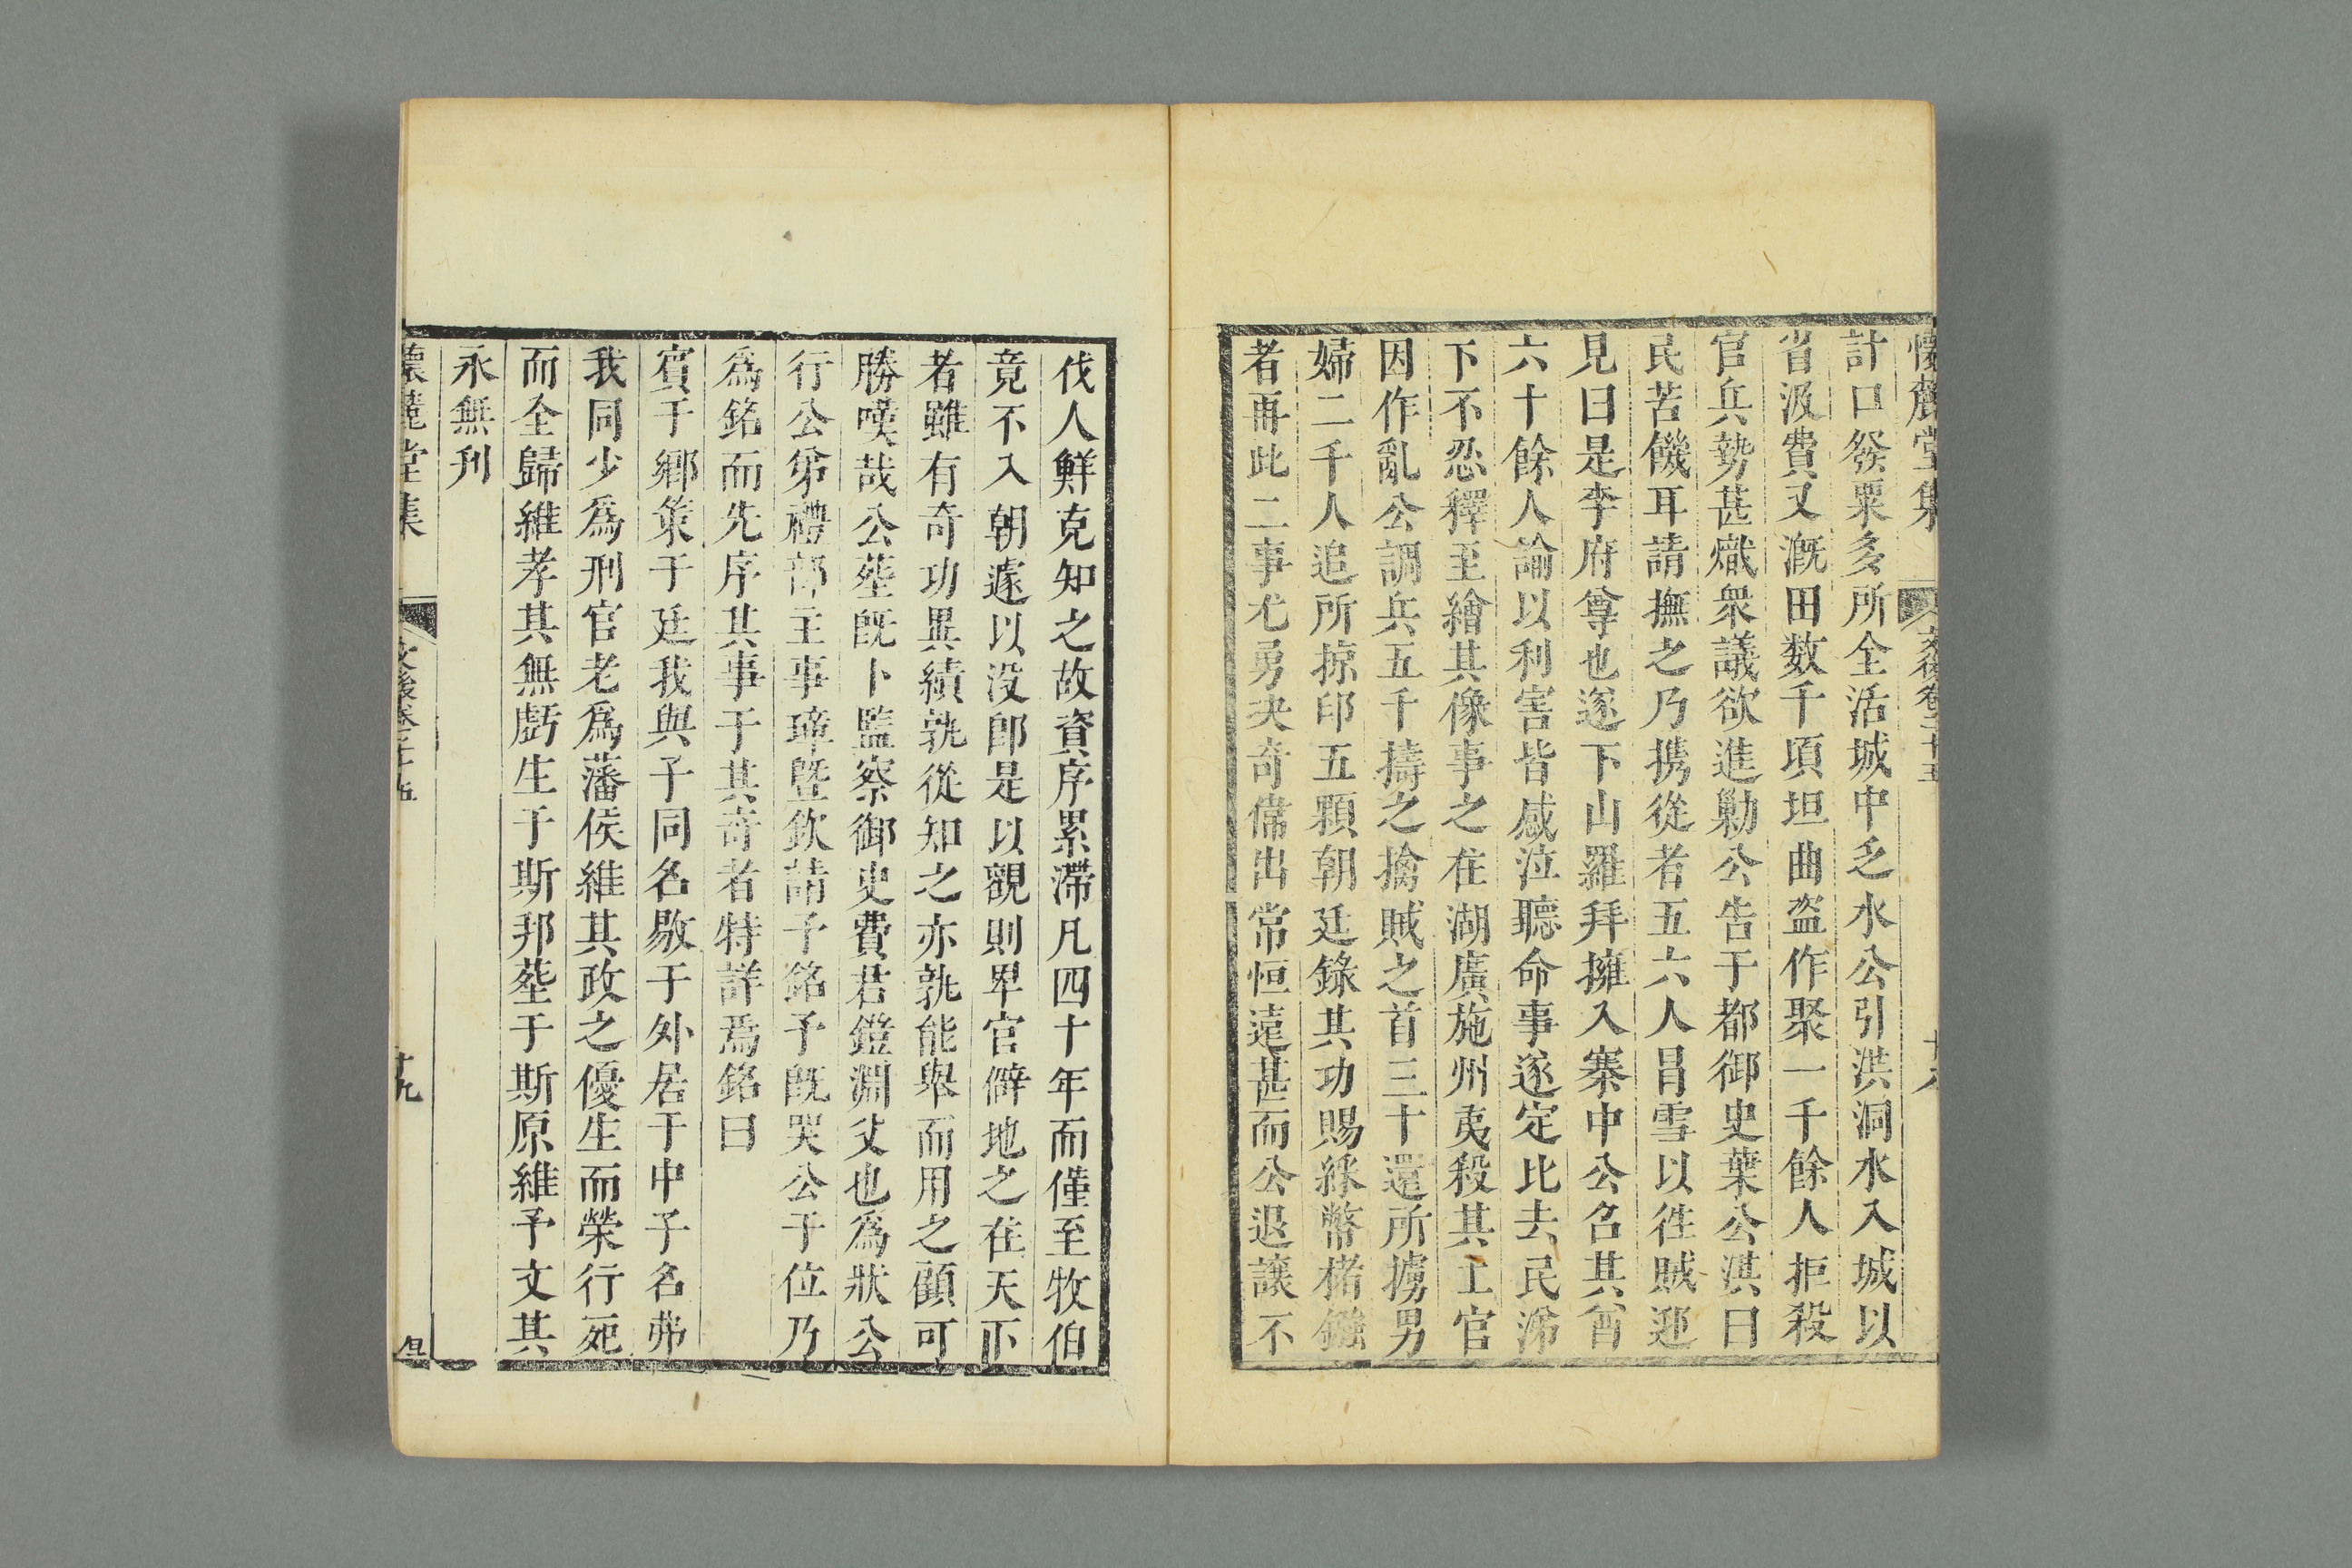 懷麓堂集 文後卷二十五 十八
計口發粟多所全活城中乏水公引洪洞水入城以
省汲費又溉田数千項坦曲盗作聚一千餘人拒殺
官兵勢甚熾衆議欲進勦公告于都御史葉公淇曰
民苦饑耳請撫之乃携從者五六人冐雪以徃賊迎
見曰是李府尊也遂下山羅拜擁入寨中公名其酋
六十餘人諭以利害皆感泣聽命事遂定比去民涕
下不忍釋至繪其像事之在湖廣施州夷殺其土官
因作亂公調兵五千擣之擒賊之首三十還所擄男
婦二千人追所掠印五顆朝廷錄其功賜綵幣楮鏹
者再此二事尤勇决奇偉出常恒遠甚而公退讓不
伐人鮮克知之故資序累滯凡四十年而僅至牧伯
竟不入朝遽以没郎是以觀則卑官僻地之在天下
者雖有奇功異績孰從知之亦孰能舉而用之顧可
勝嘆哉公塟旣卜監察御史費君鎧淵父也爲狀公
行公弟禮部主事璋曁欽請予銘予旣哭公于位乃
爲銘而先序其事于其奇者特詳焉銘曰
賓于鄉策于廷我與子同名敭于外居于中子名弗
我同少爲刑官老爲藩侯維其政之優生而榮行死
而全歸維孝其無虧生于斯邦塟于斯原維予文其
永無刋
懷麓堂集 文後卷二十五 十九